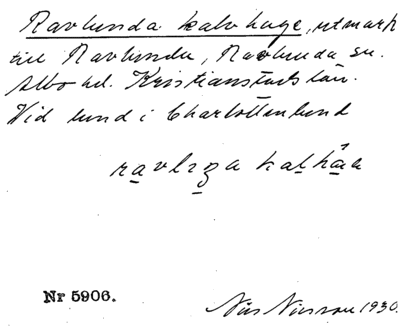 Ravlunda kalvhage, utmark
till Ravlunda, Ravlunda sn.
Albo hd. Kristianstads län.
Vid lund i Charlottenlund
ravlıga kal
Nr 5906.
Nils Nilsson 1930.